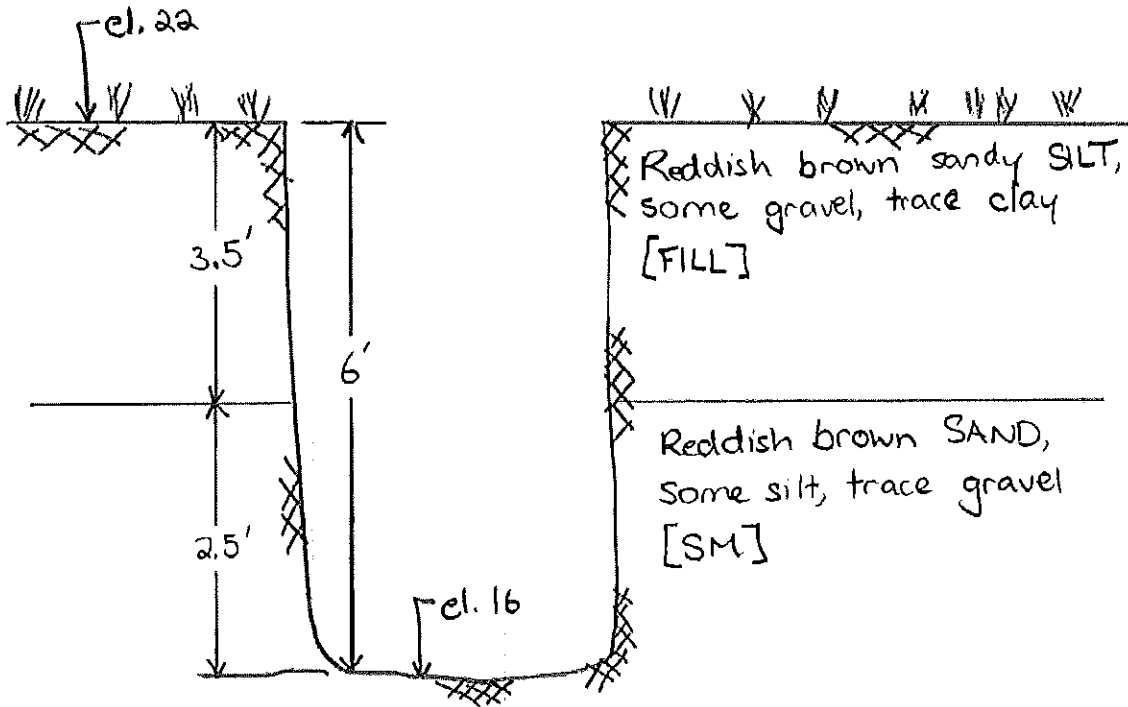 el. 22
Reddish brown sandy SILT,
some gravel, trace clay
[FILL]
3.5'
6'
Reddish brown SAND,
some silt, trace gravel
[SM]
2.5'
el. 16